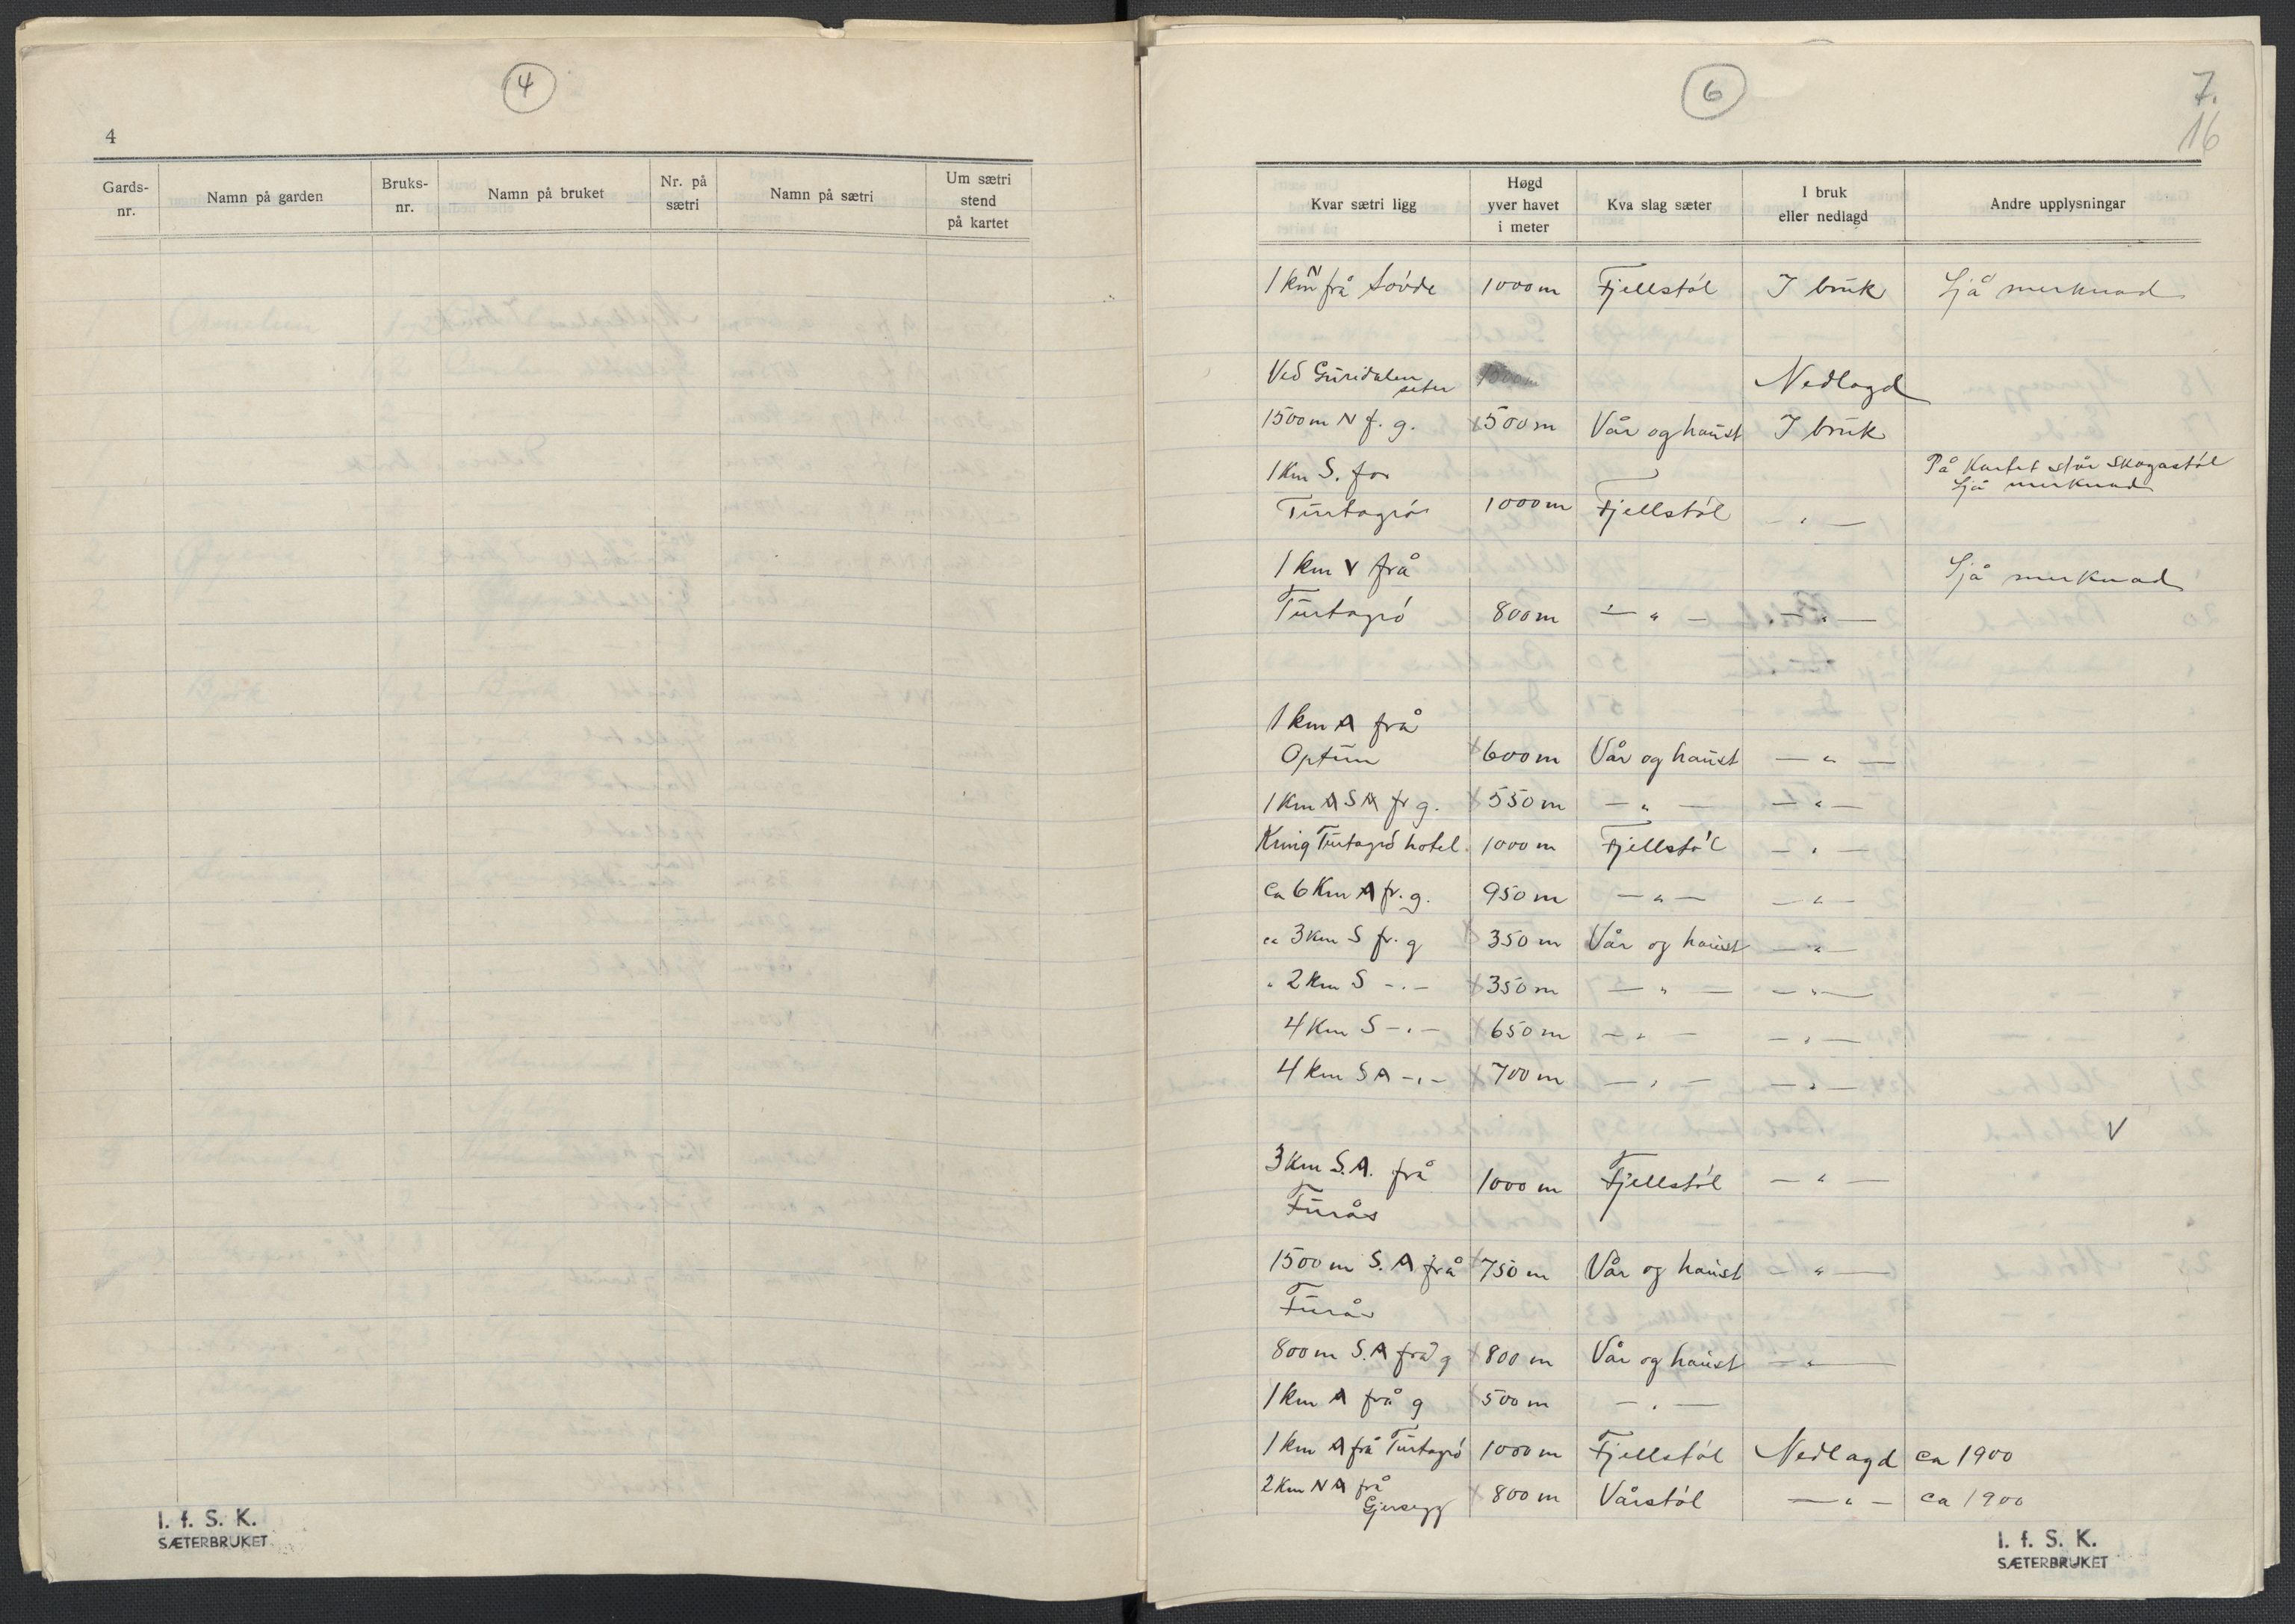 4
4
Gards-
nr.
Namn på garden
Bruks-
nr.
Namn på bruket
Nr. på
sætri
Namn på sætri
Um sætri
stend
på kartet
I. f. S. K.
SÆTERBRUKET
6
7.
16
Kvar sætri ligg
Høgd
yver havet
i meter
Kva slag sæter
I bruk
eller nedlagd
Andre upplysningar
1 km N frå 1000 m Fjellstøl I bruk Sjå merknad
Ved seter Nedlagd
1500 m N f. g. x 500 m Vår og haust I bruk
1 Km S. for På Kartet står Skogastøl
Sjå merknad
Turtagrø 1000 m Fjellstøl — „ —
1 km V frå Sjå merknad
Turtagrø 800 m — „ — — „ —
1 km A frå
Optun x 600 m Vår og haust — „ —
1 Km ASA fr g. x 550 m — „ — — „ —
Kring Turtagrø hotel. 1000 m Fjellstøl — „ —
ca 6 Km A fr. g. 950 m — „ — — „ —
ca 3 km S fr. g x 350 m Vår og haust — „ —
„ 2 Km S — „ — x 350 m — „ — — „ —
4 Km S — „ — x 650 m — „ — — „ —
4 Km SA — „ — x 700 m — „ — — „ —
V
3 Km S.A. frå 1000 m Fjellstøl — „ —
Furås
1500 m S.A frå x 750 m Vår og haust — „ —
Furås
800 m S.A frå g x 800 m Vår og haust — „ —
1 km A frå g x 500 m — „ —
1 km A frå Turtagrø 1000 m Fjellstøl Nedlagd ca 1900
2 Km NA frå x 800 m Vårstøl — „ — ca 1900
I. f. S. K.
SÆTERBRUKET